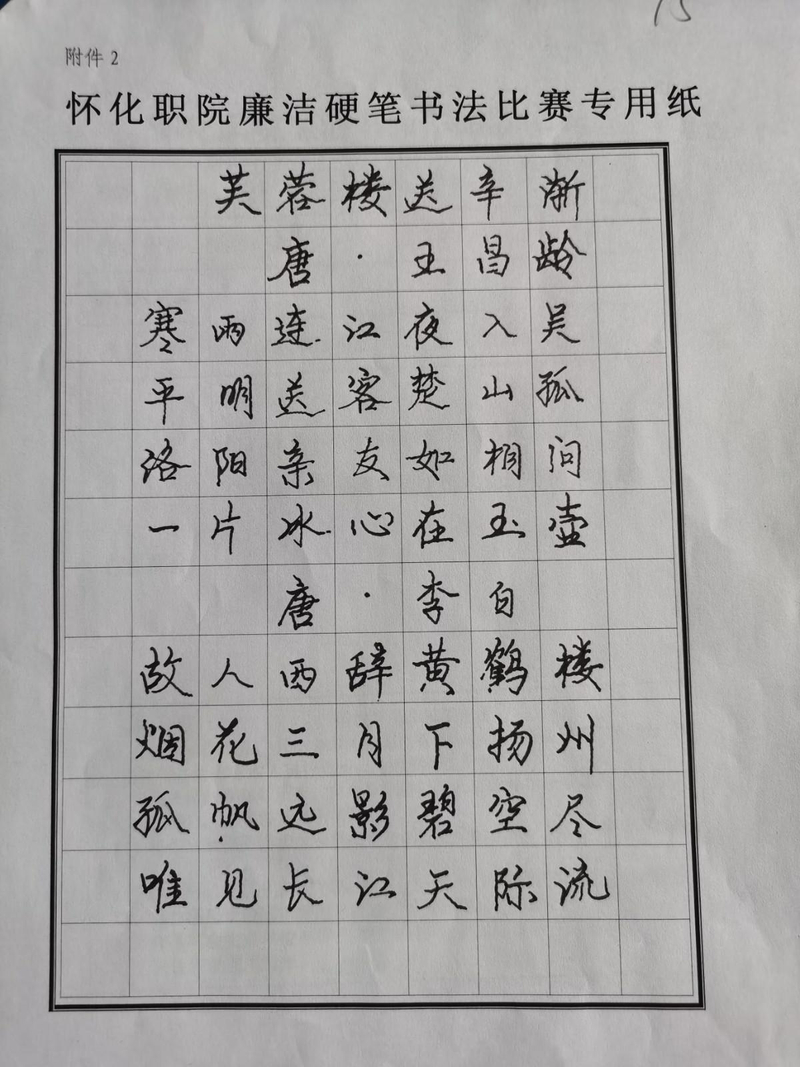 15
附件 2
怀化职院廉洁硬笔书法比赛专用纸
芙蓉楼送辛渐
唐·王昌龄
寒雨连江夜入吴
平明送客楚山孤
洛阳亲友如相问
一片冰心在玉壶
唐·李白
故人西辞黄鹤楼
烟花三月下扬州
孤帆远影碧空尽
唯见长江天际流